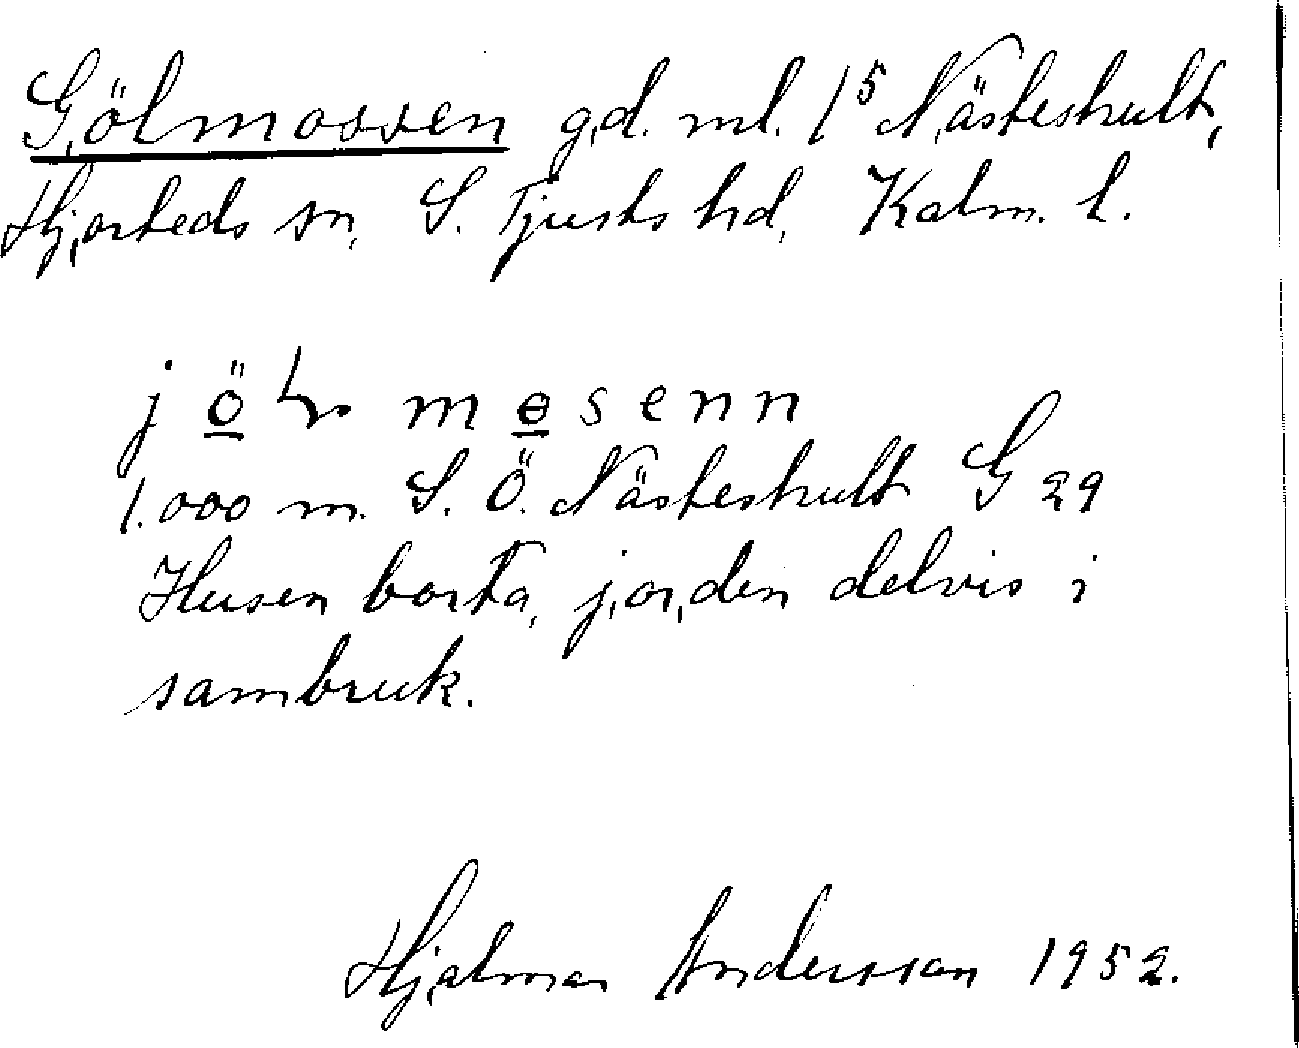 Gölmossen gd. ml. 1⁵ Nästeshult,
Hjorteds sn, S. Tjusts hd, Kalm. l.
jö̲ɭ mɵ̲senn
1.000 m. S. Ö. Nästeshult G 29
Husen borta, jorden delvis i
sambruk.
Hjalmar Andersson 1952.